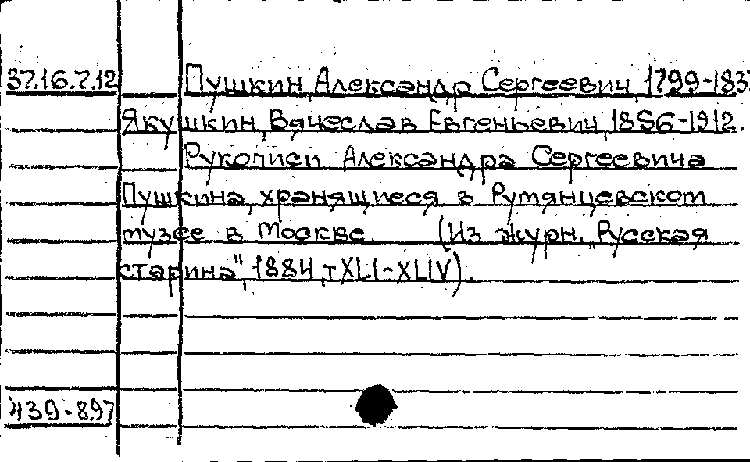 37.16.7.12 Пушкин, Александр Сергеевич, 1799-183
Якушкин, Вячеслав Евгеньевич, 1856-1912.
Рукописи Александра Сергеевича
Пушкина, хранящиеся в Румянцевском
музее в Москве. (Из журн. „Русская
старина", 1884, т XLI-XLIV).
439-897